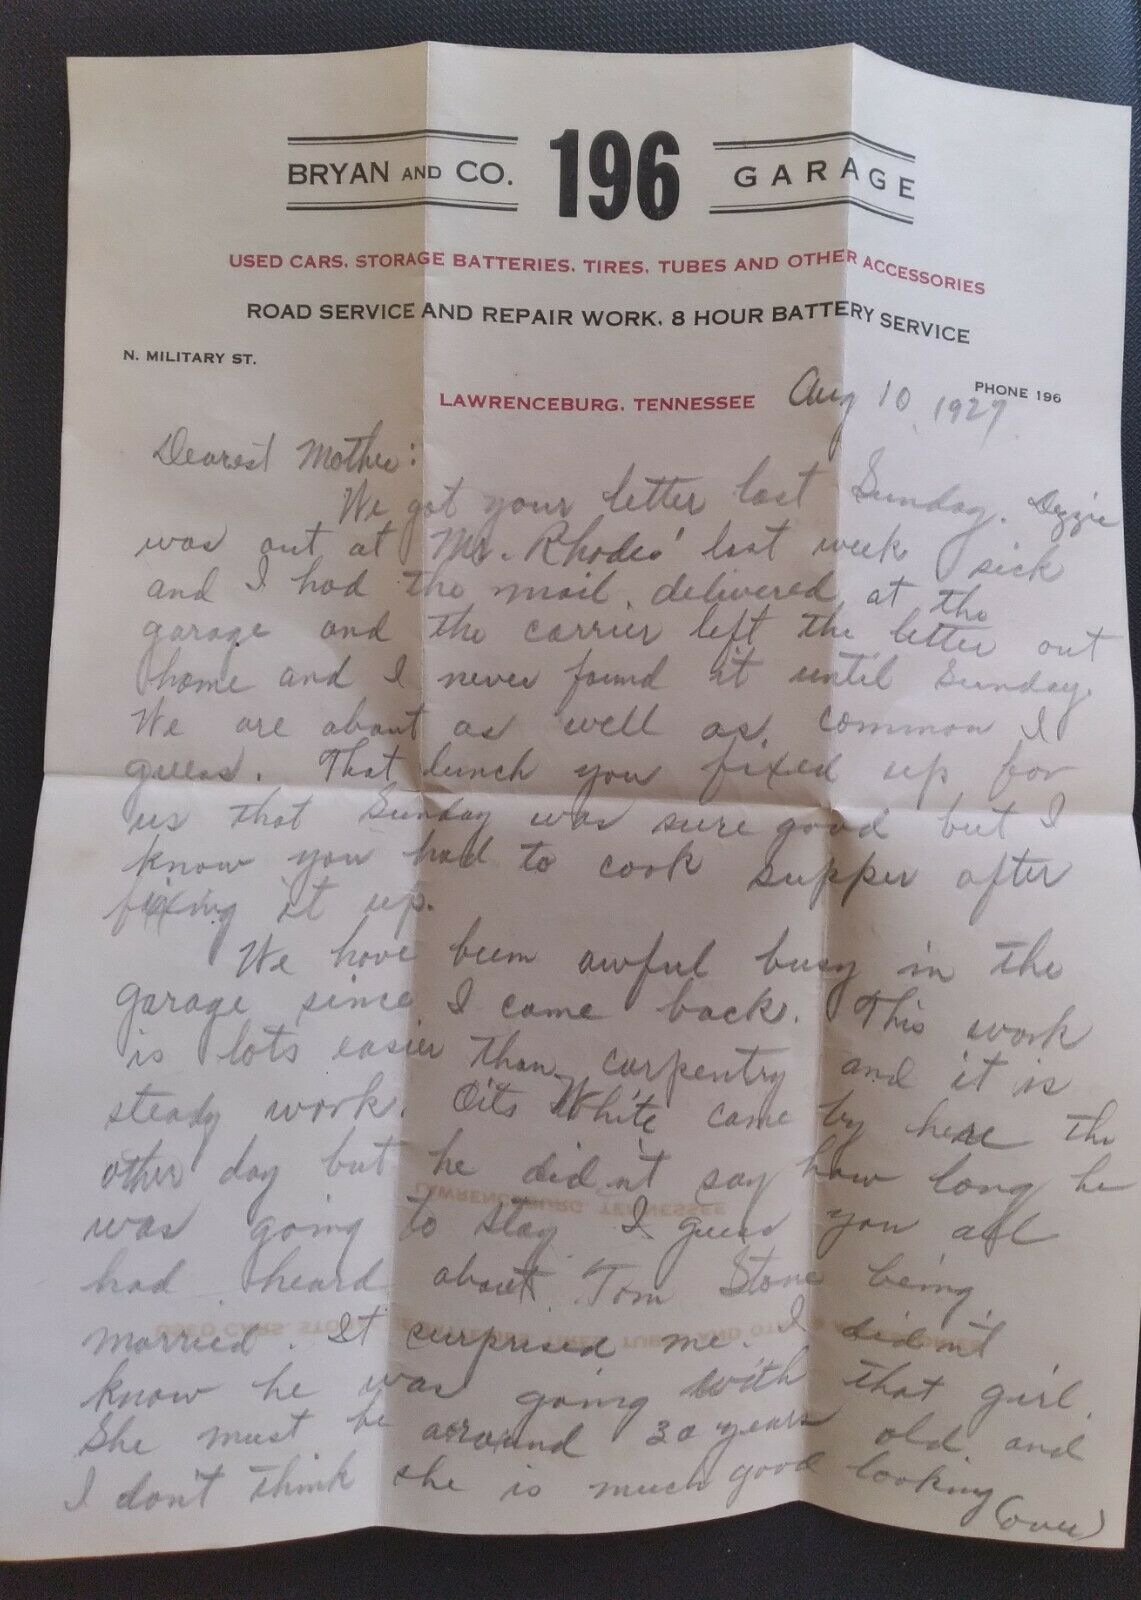 BRYAN AND CO. 196 GARAGE
USED CARS, STORAGE BATTERIES, TIRES, TUBES AND OTHER ACCESSORIES
ROAD SERVICE AND REPAIR WORK, 8 HOUR BATTERY SERVICE
N. MILITARY ST.
PHONE 196
LAWRENCEBURG, TENNESSEE Aug 10, 1927
Dearest Mother:
We got your letter last Sunday. Ozzie
was out at Mr. Rhodes' last week sick
and I had the mail delivered at the
garage and the carrier left the letter out
home and I never found it until Sunday.
We are about as well as common I
guess. That lunch you fixed up for
us that Sunday was sure good but I
know you had to cook supper after
fixing it up.
We have been awful busy in the
garage since I came back. This work
is lots easier than carpentry and it is
steady work. Oits White came by here the
other day but he didn't say how long he
was going to stay. I guess you all
had heard about Tom Stone being
married. It surprised me. I didn't
know he was going with that girl.
She must be around 30 years old and
I don't think she is much good looking
(over)
LAWRENCEBURG, TENNESSEE
USED CARS, STORAGE BATTERIES, TIRES, TUBES AND OTHER ACCESSORIES